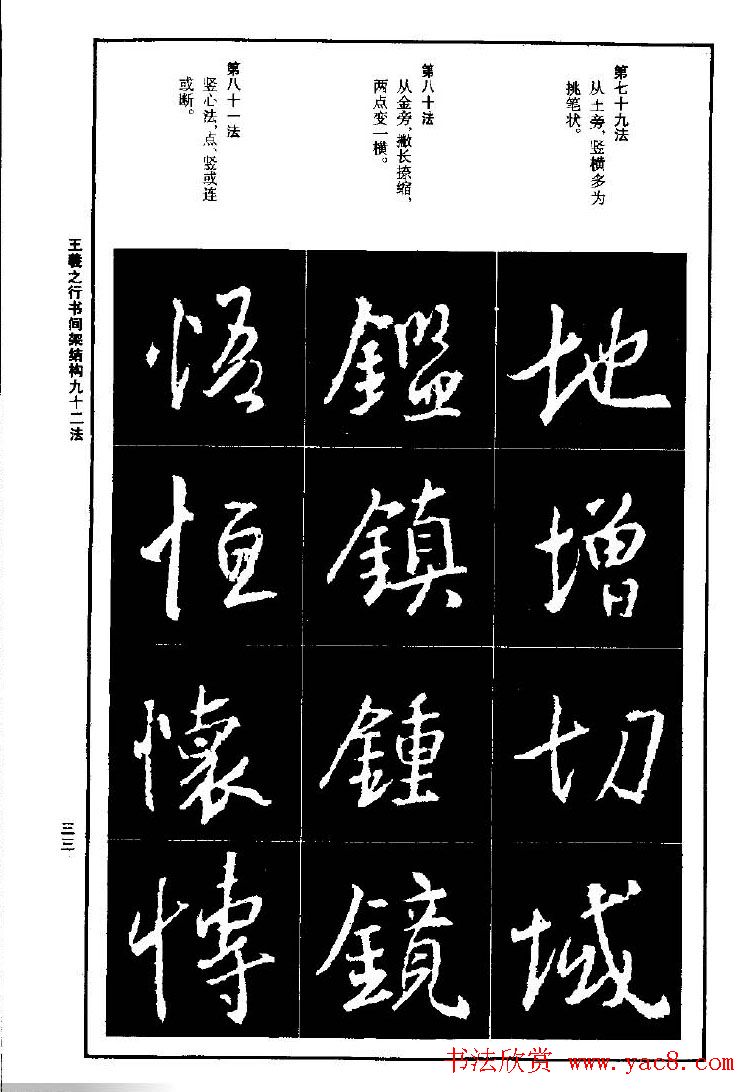 第七十九法
从土旁，竖横多为
挑笔状。
地
增
切
域
第八十法
从金旁，撇长捺缩，
两点变一横。
鑑
鎮
鍾
鏡
第八十一法
竖心法，点、竖或连
或断。
悟
恒
懷
慱
王羲之行书间架结构九十二法
三三
书法欣赏 www.yac8.com